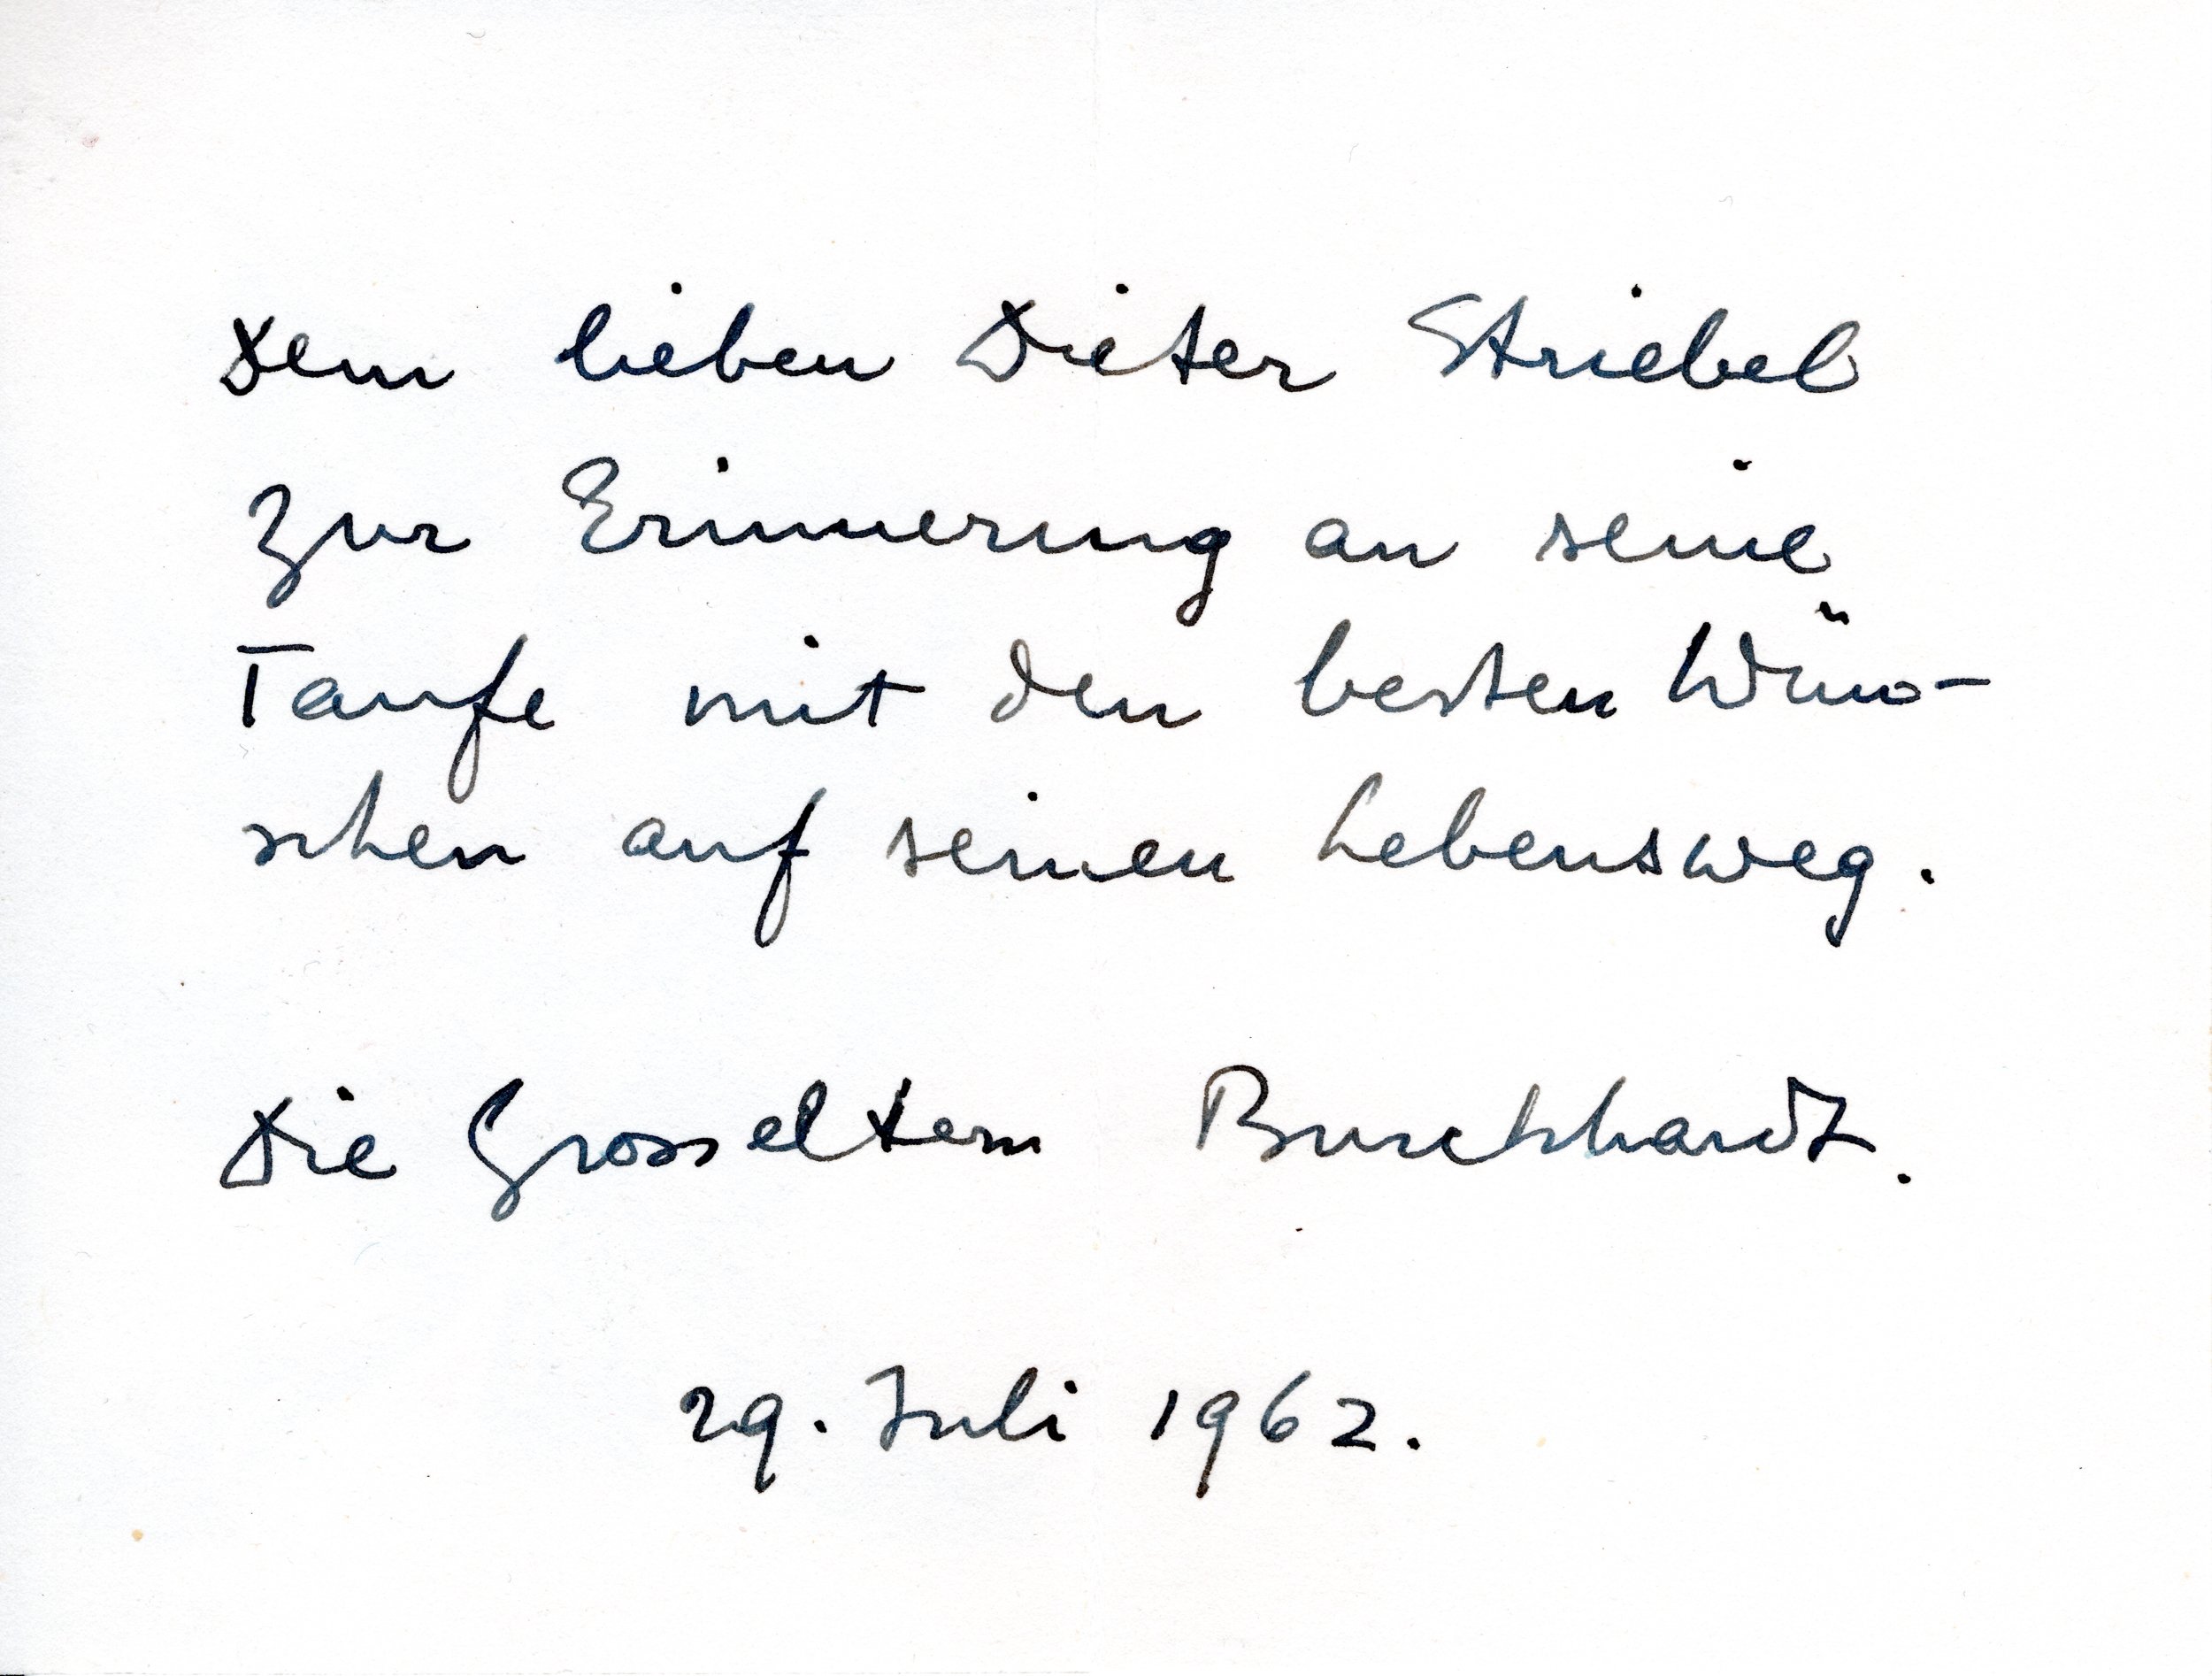 Dem lieben Dieter Striebel
zur Erinnerung an seine
Taufe mit den besten Wün-
schen auf seinen Lebensweg.
Die Grosseltern Burckhardt.
29. Juli 1962.